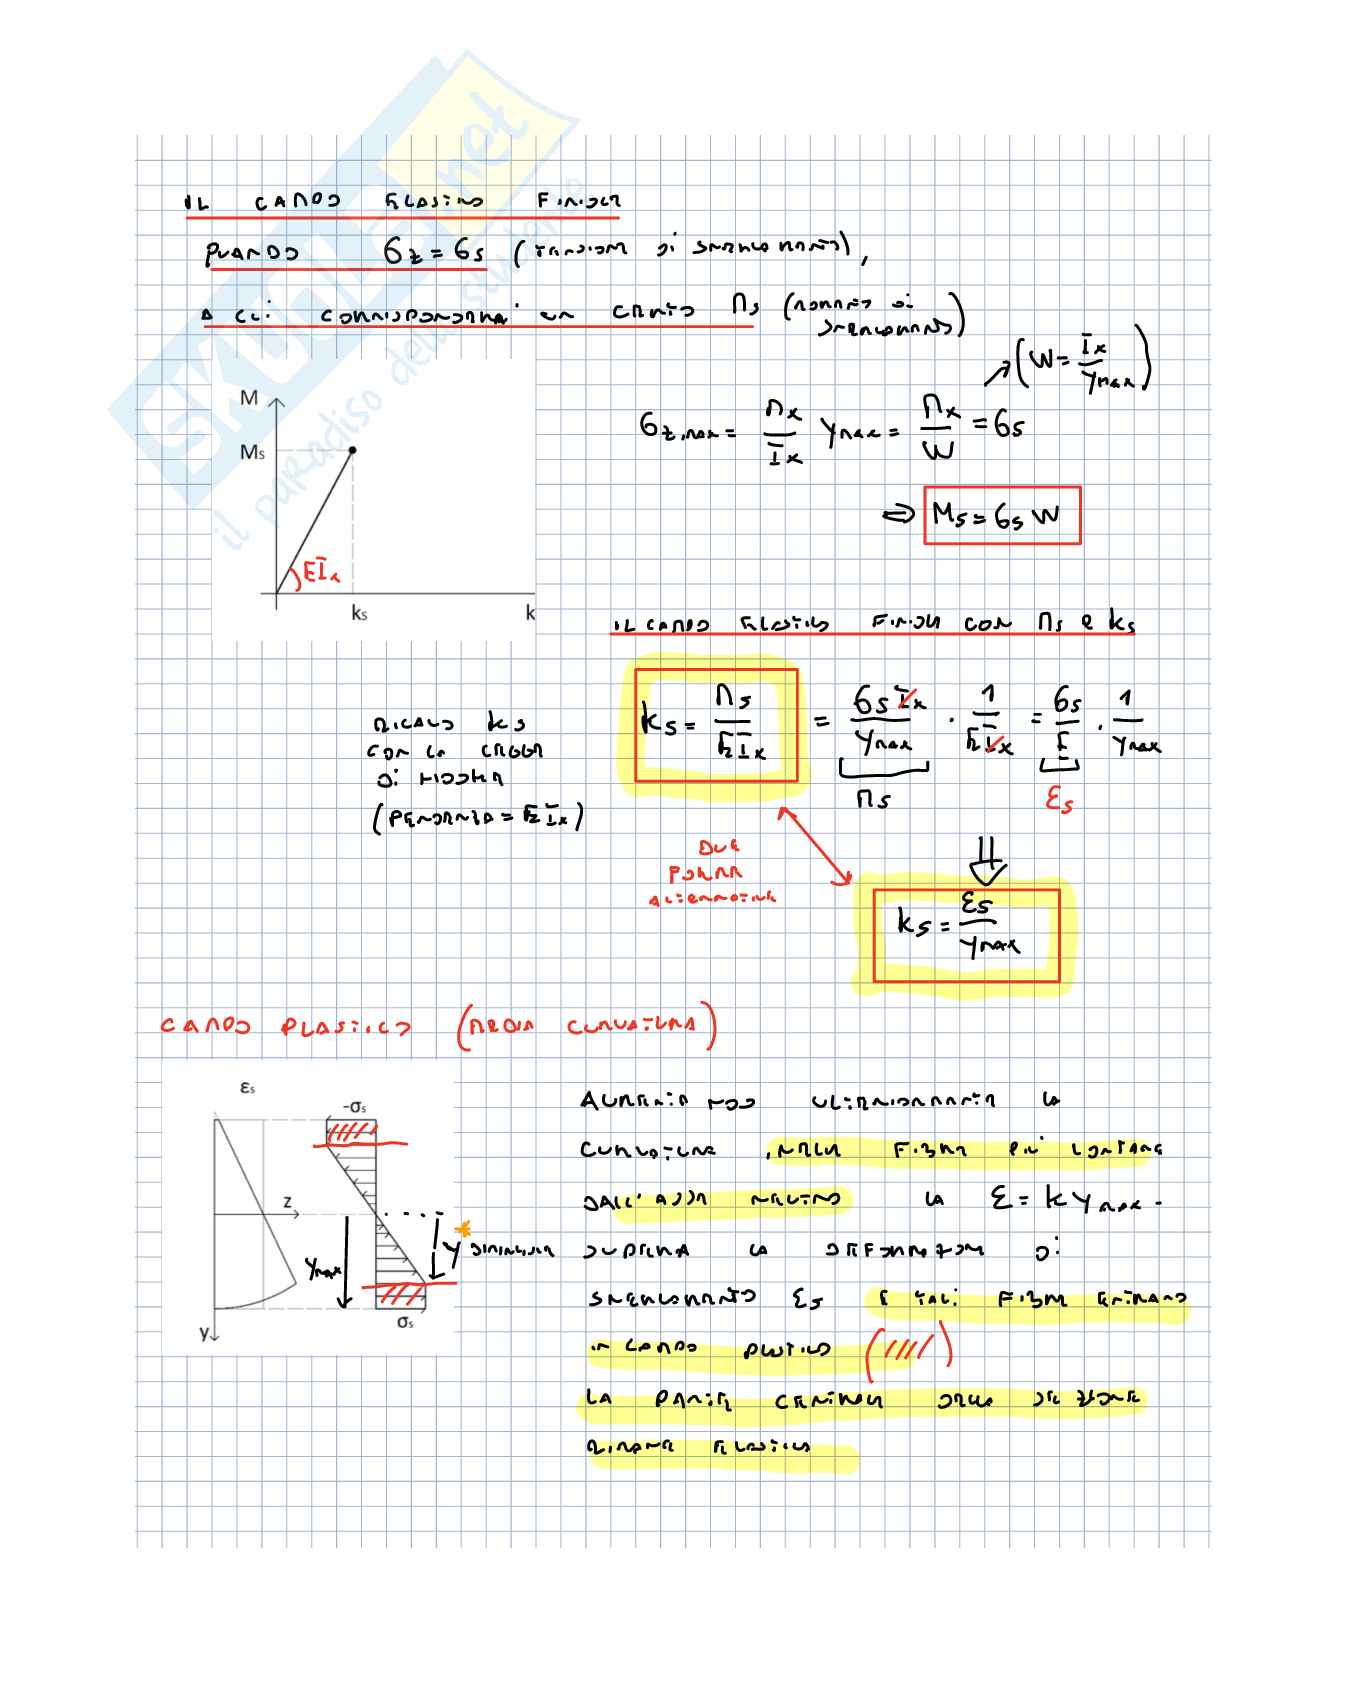 IL CAMPO ELASTICO FINISCE
QUANDO σz = σs (TENSIONE DI SNERVAMENTO),
A CUI CORRISPONDERÀ UN CERTO Ms (MOMENTO DI SNERVAMENTO)
(W = Ix / ymax)
σz,max = Mx / Ix ymax = Mx / W = σs
⇒ Ms = σs W
M
Ms
EIx
ks
k
IL CAMPO ELASTICO FINISCE CON Ms e ks
RICAVO ks
CON LA LEGGE
DI HOOKE
(PENDENZA = EIx)
ks = Ms / EIx = σs Ix / ymax · 1 / EIx = σs / E · 1 / ymax
Ms
εs
DUE
FORME
ALTERNATIVE
ks = εs / ymax
CAMPO PLASTICO (MEDIA CURVATURA)
εs
-σs
z
ymax
y* DIMINUISCE
σs
y
AUMENTANDO ULTERIORMENTE LA
CURVATURA, NELLE FIBRE PIÙ LONTANE
DALL'ASSE NEUTRO LA ε = k ymax
SUPERA LA DEFORMAZIONE DI
SNERVAMENTO εs E TALI FIBRE ENTRANO
IN CAMPO PLASTICO
LA PARTE CENTRALE DELLA SEZIONE
RIMANE ELASTICA
SKUOLA.net
il paradiso dello studente